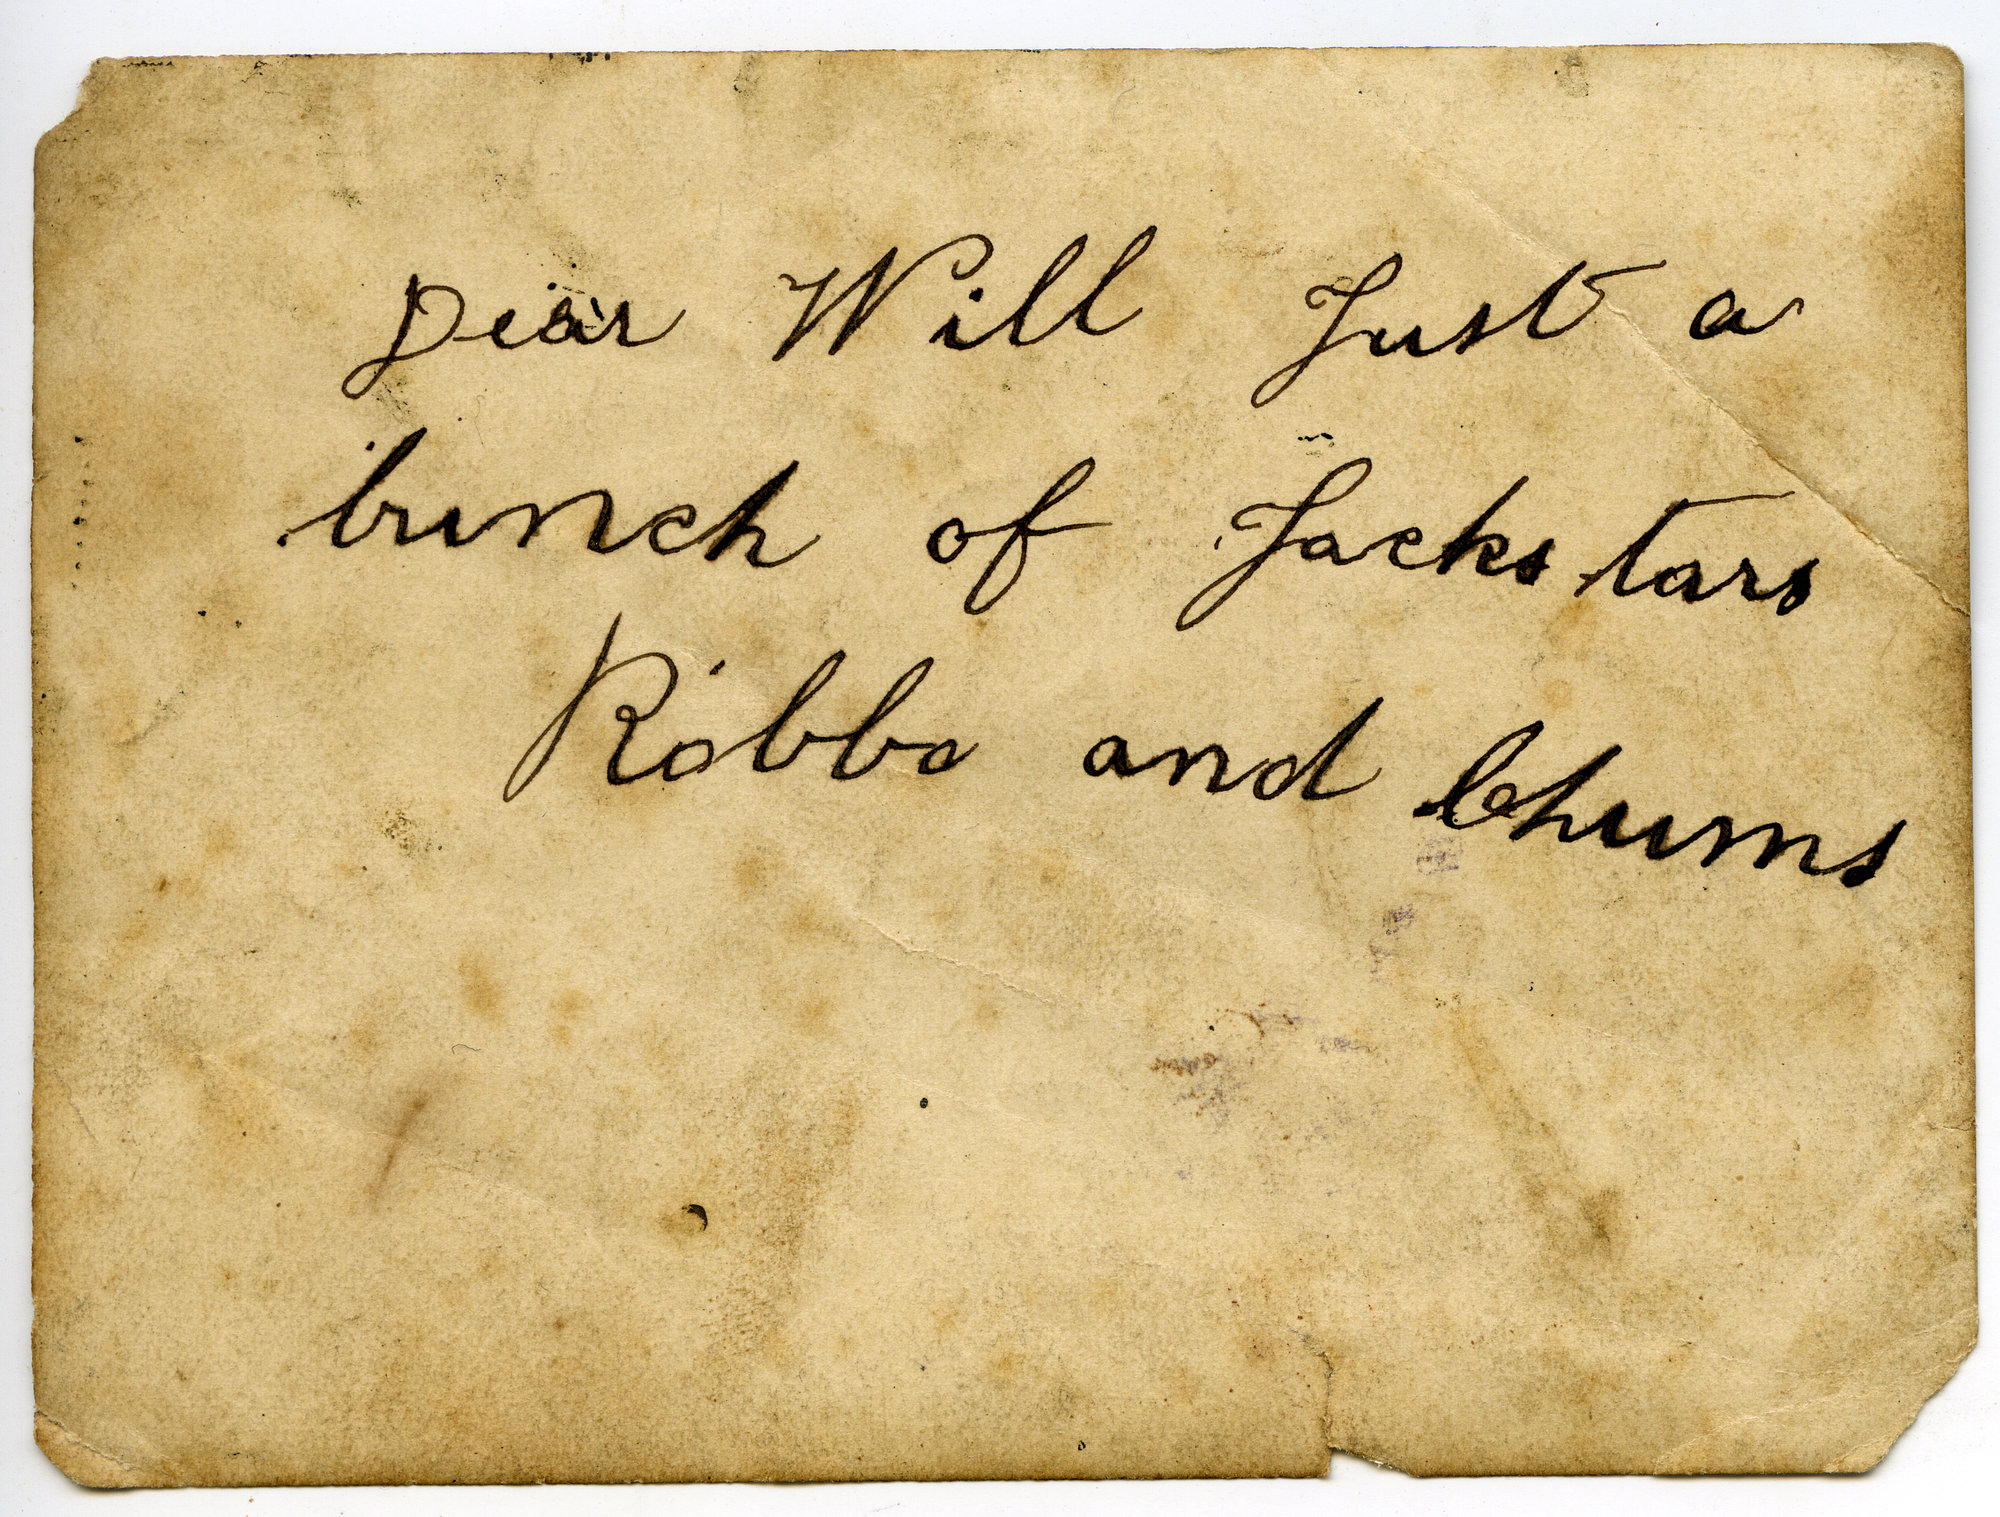 Dear Will Just a
bunch of Jacks tars
Robbo and Chums